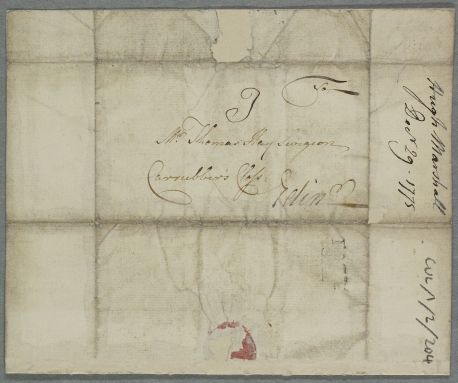 3
To
Mr. Thomas Hay Surgeon
Carrubber's Closs
Edinr.
Hugh Marshall
Decr. 29. 1775